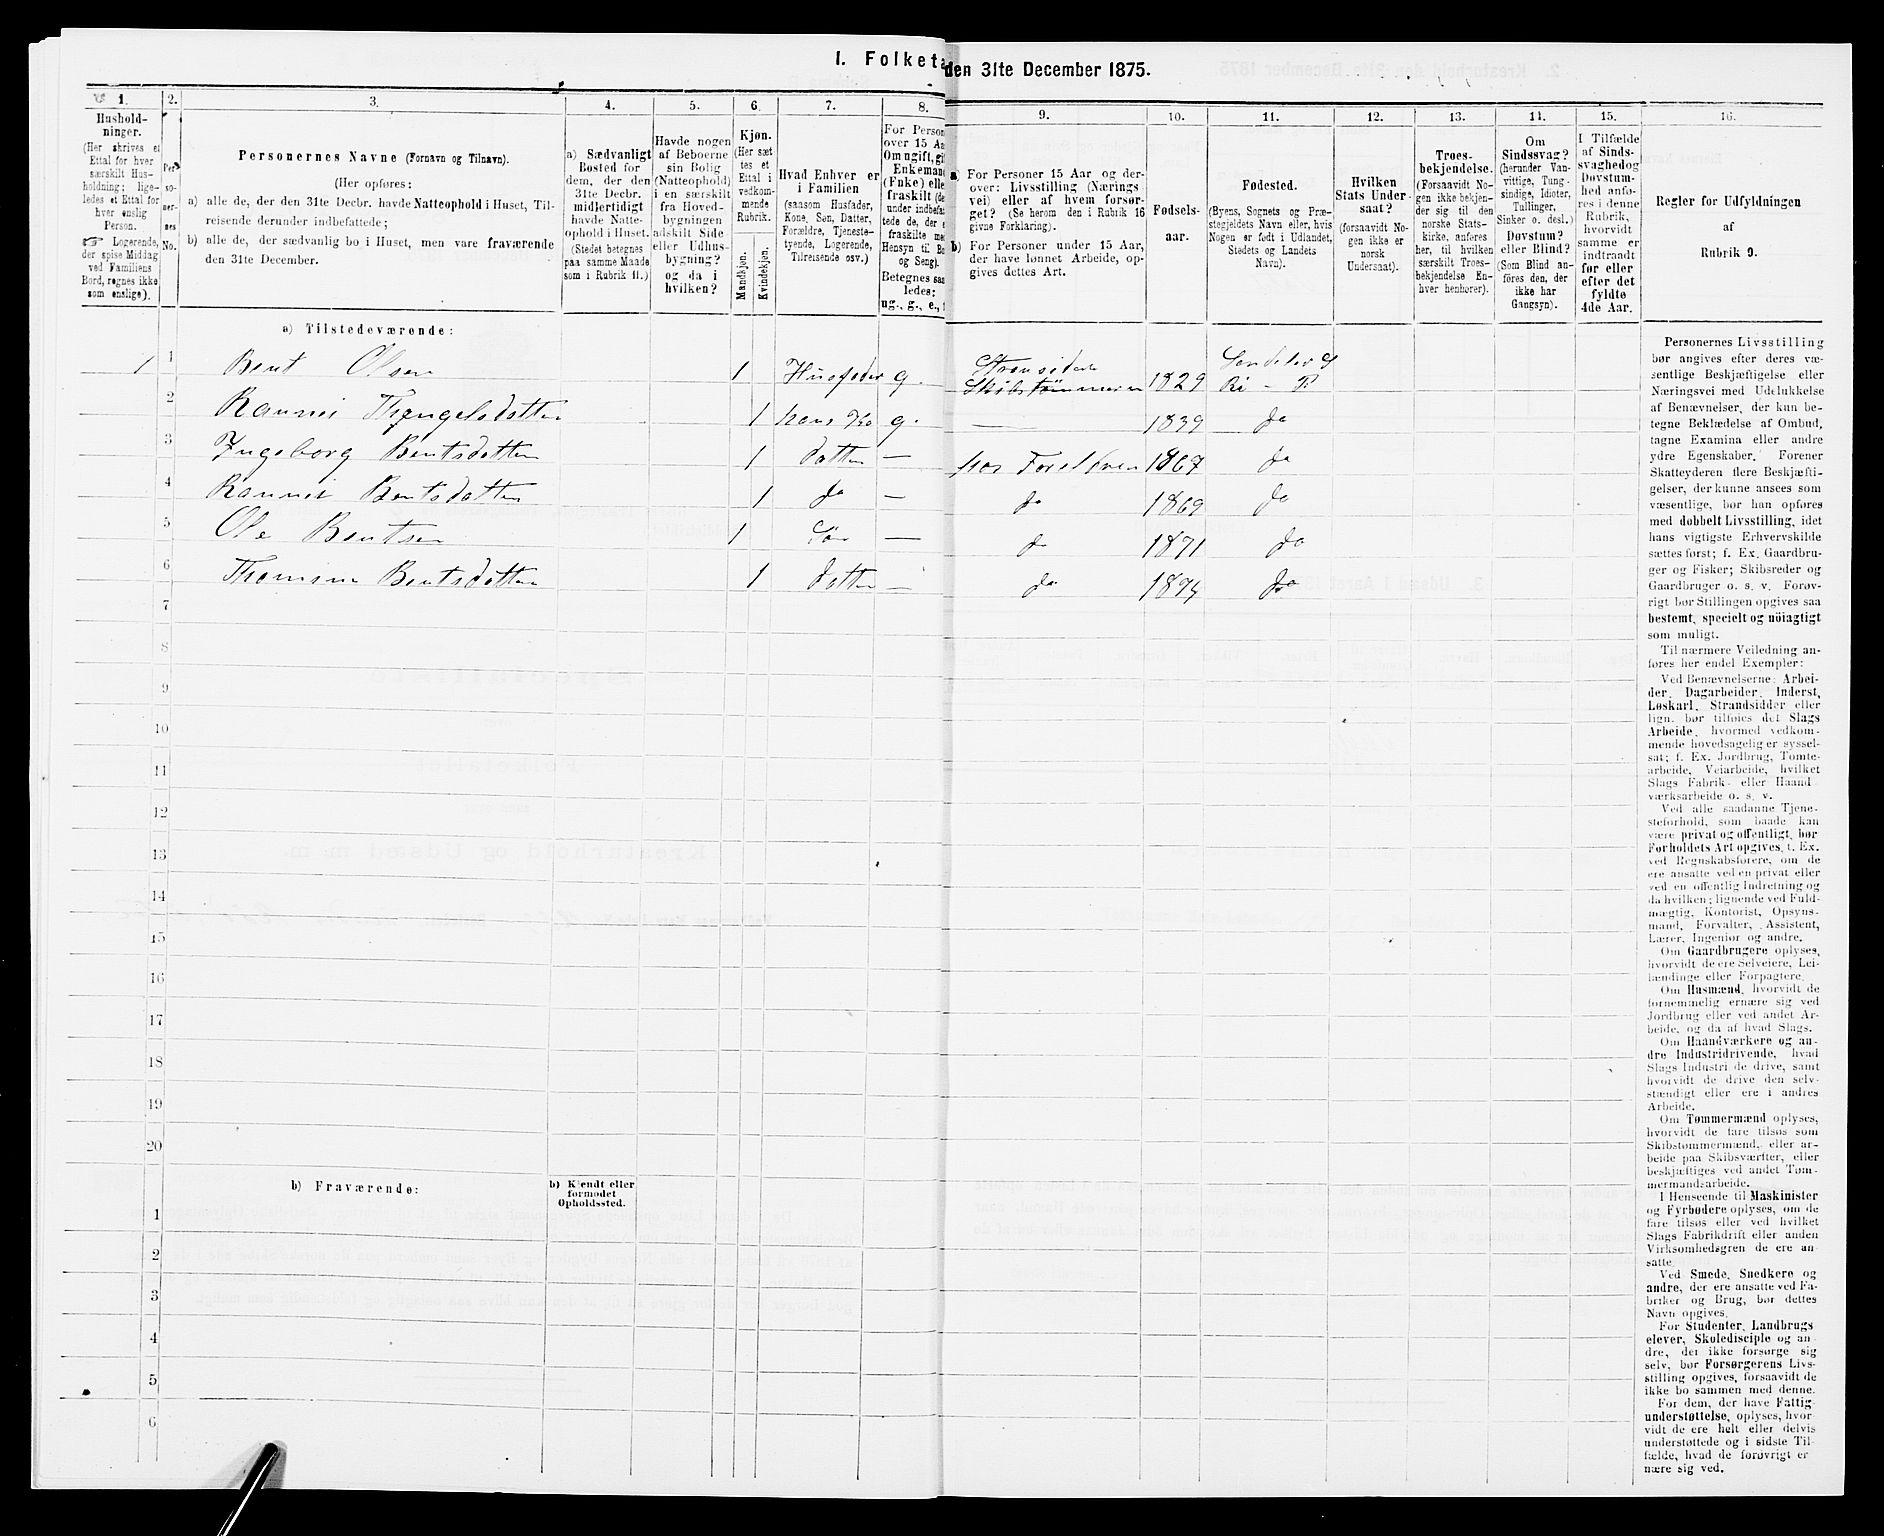 I. Folketa
den 31te December 1875.
1.
Hushold-
ninger.
(Her skrives et
Ettal for hver
særskilt Hus-
holdning; lige-
ledes et Ettal for
hver enslig
Person.
☞ Logerende,
der spise Middag
ved Familiens
Bord, regnes ikke
som enslige).
2.
Per-
so-
ner-
nes
No.
3.
Personernes Navne (Fornavn og Tilnavn).
(Her opføres:
a) alle de, der den 31te Decbr. havde Natteophold i Huset, Til-
reisende derunder indbefattede;
b) alle de, der sædvanlig bo i Huset, men vare fraværende
den 31te December.
4.
a) Sædvanligt
Bosted for
dem, der den
31te Decbr.
midlertidigt
havde Natte-
ophold i Huset.
(Stedet betegnes
paa samme Maade
som i Rubrik 11.)
5.
Havde nogen
af Beboerne
sin Bolig
(Natteophold)
i en særskilt
fra Hoved-
bygningen
adskilt Side
eller Udhus-
bygning?
og da i
hvilken?
6.
Kjøn.
(Her sæt-
tes et
Ettal i
vedkom-
mende
Rubrik.
Mandkjøn.
Kvindekjøn.
7.
Hvad Enhver er
i Familien
(saasom Husfader,
Kone, Søn, Datter,
Forældre, Tjeneste-
tyende, Logerende,
Tilreisende osv.)
8.
For Person
over 15 Aa
Om ugift, gif
Enkemand
(Enke) elle
fraskilt (de
under indbefat
tede de, der e
fraskilte me
Hensyn til Bo
og Seng).
Betegnes saa
ledes;
ug., g., e.,
9.
a) For Personer 15 Aar og der-
over: Livsstilling (Nærings-
vei) eller af hvem forsør-
get? (Se herom den i Rubrik 16
givne Forklaring).
b) For Personer under 15 Aar,
der have lønnet Arbeide, op-
gives dettes Art.
10.
Fødsels-
aar.
11.
Fødested.
(Byens, Sognets og Præ-
stegjeldets Navn eller, hvis
Nogen er født i Udlandet,
Stedets og Landets
Navn).
12.
Hvilken
Stats Under-
saat?
(forsaavidt No-
gen ikke er
norsk
Undersaat).
13.
Troes-
bekjendelse.
(Forsaavidt No-
gen ikke bekjen-
der sig til den
norske Stats-
kirke, anføres
her, til hvilken
særskilt Troes-
bekjendelse En-
hver henhører).
14.
Om
Sindssvag?
(herunder Van-
vittige, Tung-
sindige, Idioter,
Tullinger,
Sinker o. desl.)
Døvstum?
eller Blind?
(Som Blind an-
føres den, der
ikke har
Gangsyn).
15.
I Tilfælde
af Sinds-
svaghed og
Døvstum-
hed anfø-
res i denne
Rubrik,
hvorvidt
samme er
indtraadt
før eller
efter det
fyldte
4de Aar.
16.
Regler for Udfyldningen
af
Rubrik 9.
a) Tilstedeværende:
1 1 Bent Olsen 1 Husfader g. Skibstømmerm 1829
2 1 g. — 1839 do
3 Ingeborg Bentsdatter 1 datter — hos Forældren 1867 do
4 Rannei Bentsdatter 1 do — do 1869 do
5 Ole Bentsen 1 Søn — do 1871 do
6 Bentsdatter 1 datter — do do
7
8
9
10
11
12
13
14
15
16
17
18
19
20
b) Fraværende:
b) Kjendt eller
formodet
Opholdssted.
1
2
3
4
5
6
Personernes Livsstilling
bør angives efter deres væ-
sentlige Beskjæftigelse eller
Næringsvei med Udelukkelse
af Benævnelser, der kun be-
tegne Beklædelse af Ombud,
tagne Examina eller andre
ydre Egenskaber. Forener
Skatteyderen flere Beskjæfti-
gelser, der kunne ansees som
væsentlige, bør han opføres
med dobbelt Livsstilling, idet
hans vigtigste Erhvervskilde
sættes først; f. Ex. Gaardbru-
ger og Fisker; Skibsreder og
Gaardbruger o. s. v. Forøv-
rigt bør Stillingen opgives saa
bestemt, specielt og nöiagtigt
som muligt.
Til nærmere Veiledning an-
føres her endel Exempler:
Ved Benævnelserne: Arbei-
der, Dagarbeider, Inderst,
Løskarl, Strandsidder eller
lign. bør tilføies det Slags
Arbeide, hvormed vedkom-
mende hovedsagelig er syssel-
sat; f. Ex. Jordbrug, Tomte-
arbeide, Veiarbeide, hvilket
Slags Fabrik- eller Haand-
værksarbeide o. s. v.
Ved alle saadanne Tjene-
steforhold, som baade kan
være privat og offentligt, bør
Forholdets Art opgives, t. Ex.
ved Regnskabsførere, om de
ere ansatte ved en privat eller
ved en offentlig Indretning og
da hvilken; lignende ved Fuld-
mægtig, Kontorist, Opsyns-
mand, Forvalter, Assistent,
Lærer, Ingeniør og andre.
Om Gaardbrugere oplyses,
hvorvidt de ere Selveiere, Lei-
lændinge eller Forpagtere.
Om Husmænd, hvorvidt de
fornemmelig ernære sig ved
Jordbrug eller ved andet Ar-
beide, og da af hvad Slags.
Om Haandværkere og an-
dre Industridrivende, hvad
Slags Industri de drive, samt
hvorvidt de drive den selv-
stændigt eller ere i andres
Arbeide.
Om Tømmermænd oplyses,
hvorvidt de fare tilsøs som
Skibstømmermænd, eller ar-
beide paa Skibsværfter, eller
beskjæftiges ved andet Tøm-
mermandsarbeide.
I Henseende til Maskinister
og Fyrbødere oplyses, om de
fare tilsøs eller ved hvilket
Slags Fabrikdrift eller anden
Virksomhedsgren de ere an-
satte.
Ved Smede, Snedkere og
andre, der ere ansatte ved Fa-
briker og Brug, bør dettes
Navn opgives.
For Studenter, Landbrugs-
elever, Skoledisciple og an-
dre, der ikke forsørge sig
selv, bør Forsørgerens Livs-
stilling opgives, forsaavidt de
ikke bo sammen med denne.
For dem, der have Fattig-
understøttelse, oplyses, hvor-
vidt de ere helt eller delvis
understøttede og i sidste Til-
fælde, hvad de forøvrigt er-
nære sig ved.